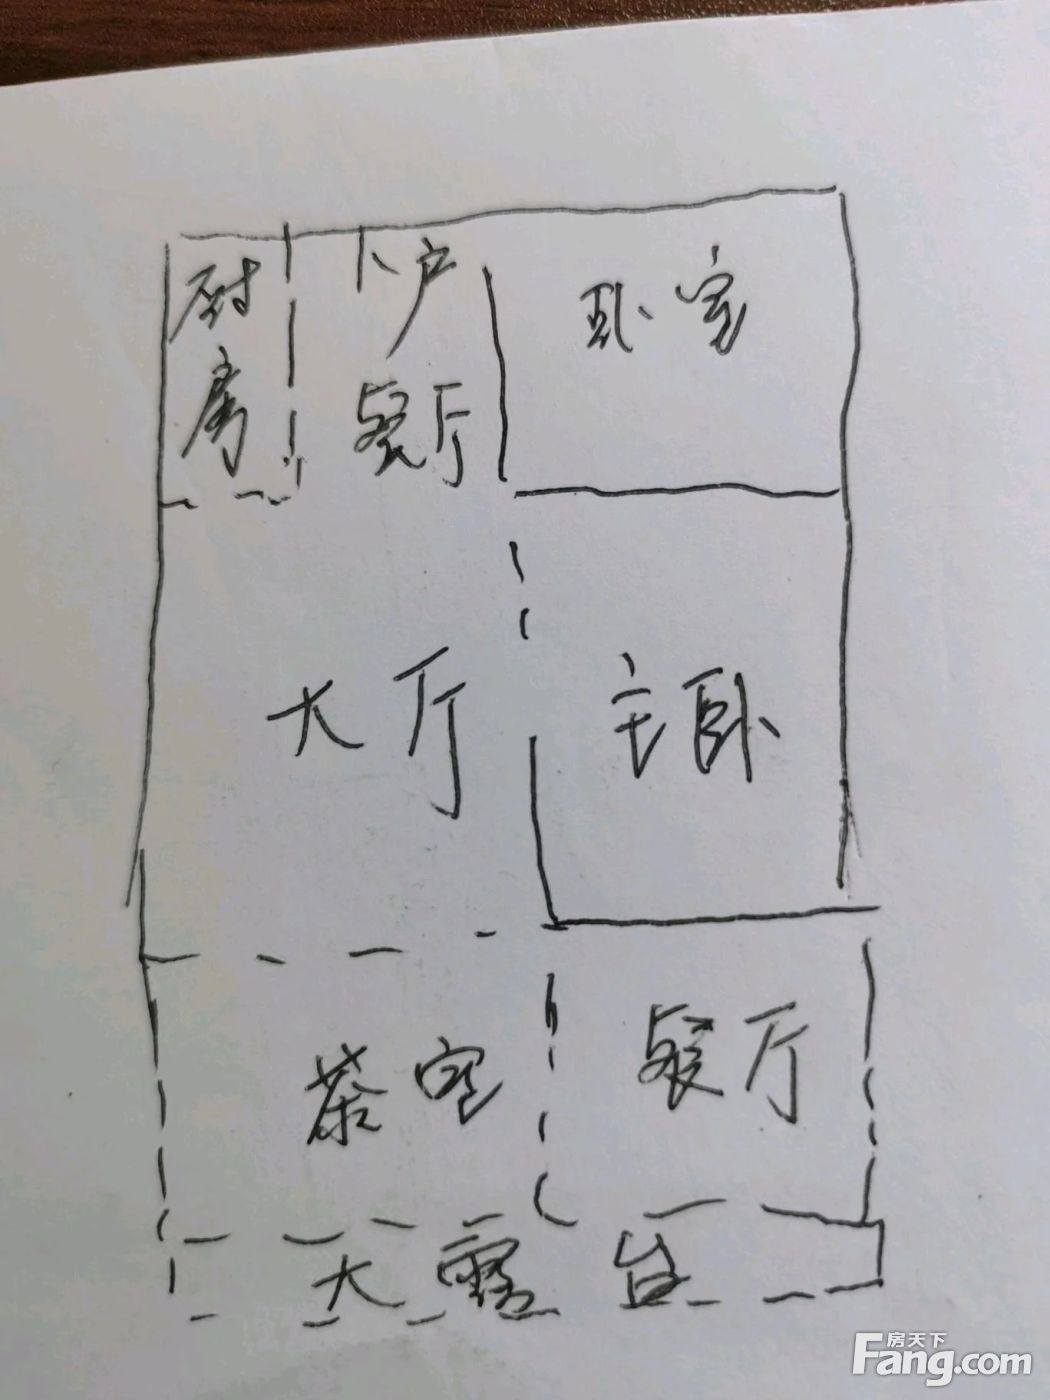 厨房
入户
餐厅
卧室
大厅
主卧
茶室
餐厅
大露台
房天下
Fang.com